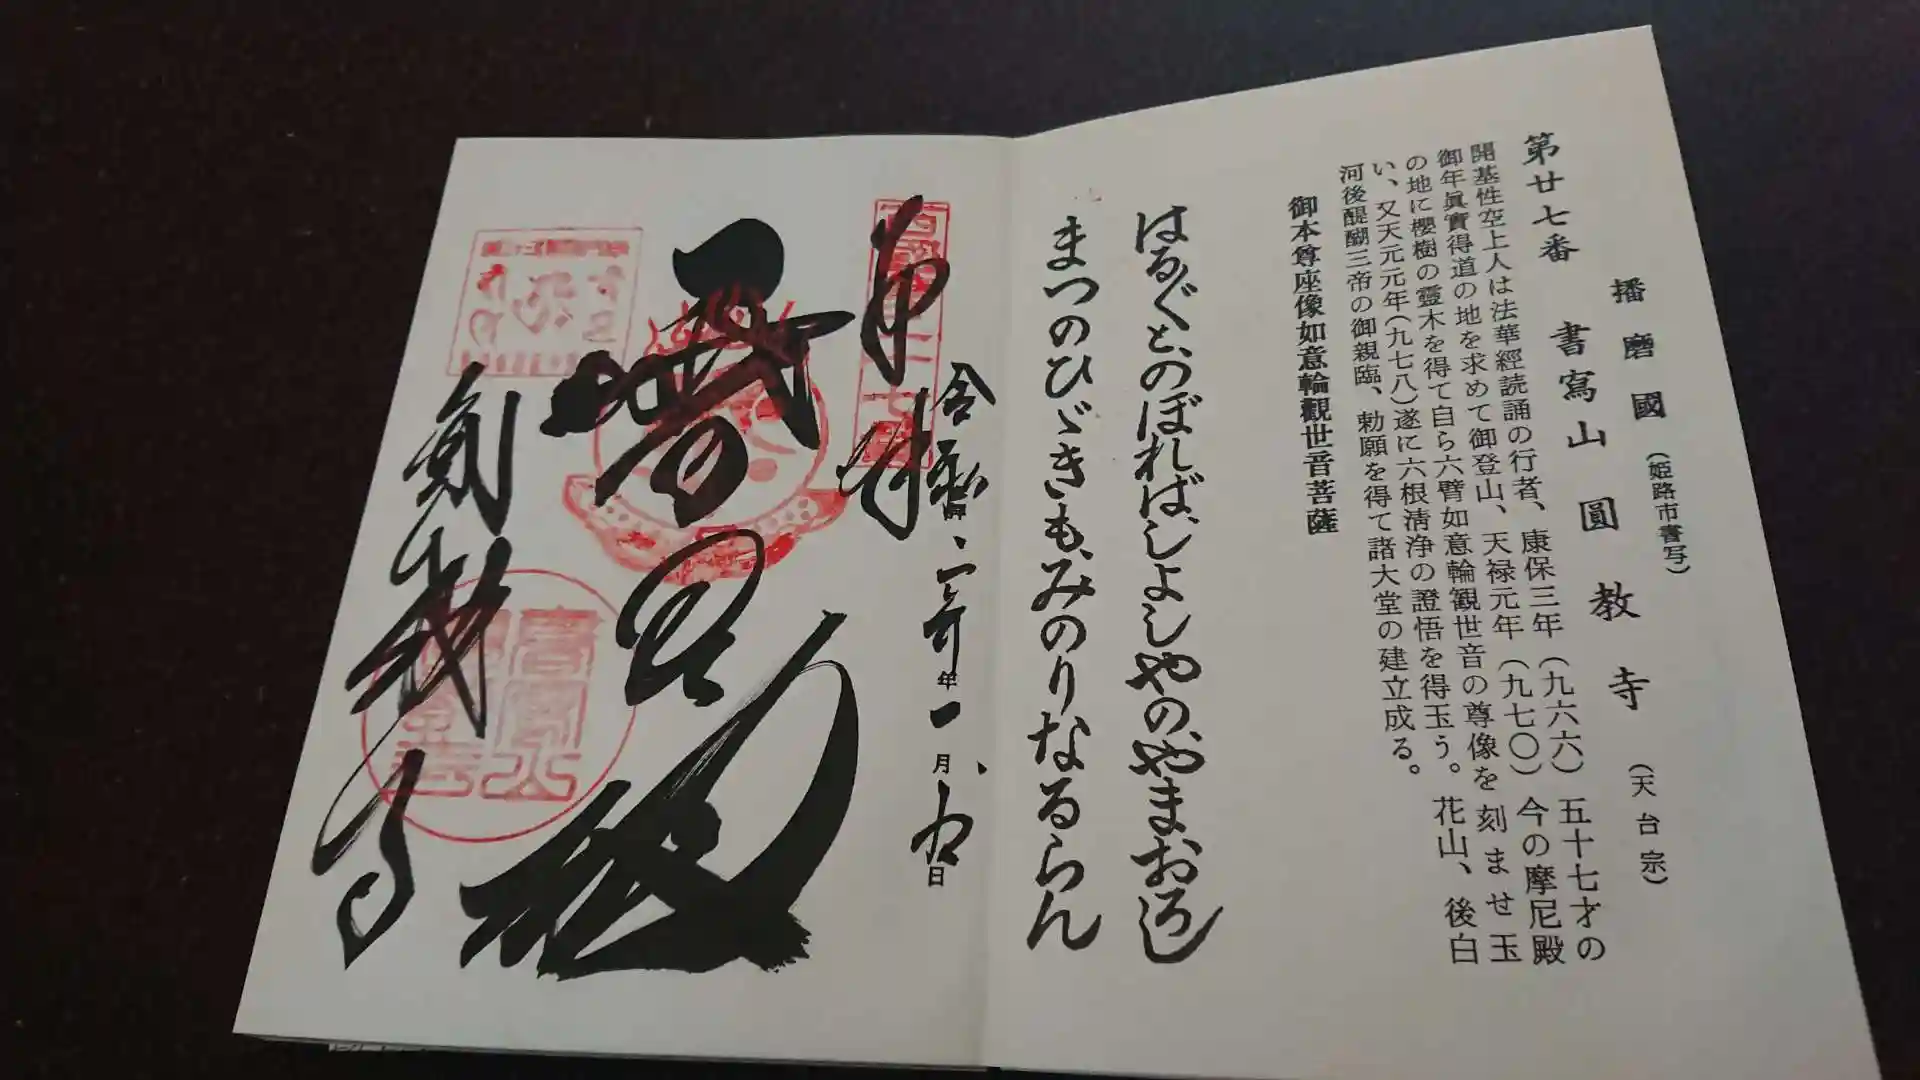 第廿七番
播磨國（姫路市書写）
書寫山圓教寺（天台宗）
開基性空上人は法華經読誦の行者、康保三年（九六六）五十七才の
御年眞實得道の地を求めて御登山、天禄元年（九七〇）今の摩尼殿
の地に櫻樹の靈木を得て自ら六臂如意輪観世音の尊像を刻ませ玉
い、又天元元年（九七八）遂に六根淸浄の證悟を得玉う。花山、後白
河後醍醐三帝の御親臨、勅願を得て諸大堂の建立成る。
御本尊座像如意輪觀世音菩薩
はるばると、のぼれば、しよしやの、やまおろし
まつのひゞきも、みのりなるらん
奉拝
令和二年一月九日
圓教寺